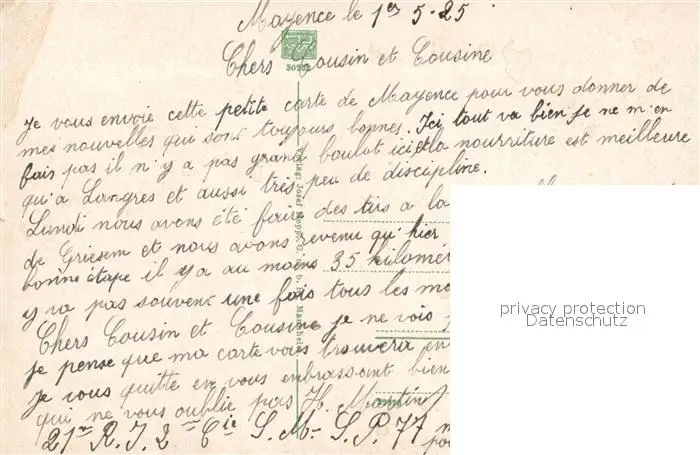 Mayence le 1er 5-25
30957
Chers Cousin et Cousine
je vous envoie cette petite carte de Mayence pour vous donner de
mes nouvelles qui sont toujours bonnes. Ici tout va bien je ne m'en
fais pas il n'y a pas grand boulot ici et la nourriture est meilleure
qu'a Langres et aussi tris peu de discipline.
Lundi nous avons été faire des tirs a la
de Griesem et nous avons revenu qu'hier
bonne étape il y a au moins 35 kilomé
y va pas souvent une fois tous les mo
Chers Cousin et Cousine je ne vois
je pense que ma carte vous trouvera en
je vous quitte en vous embrassant bien
qui ne vous oublie pas H. Martin
21me R.I. 2me Cie S.M- S.P. 77
Verlag: Josef
Mannheim
privacy protection
Datenschutz